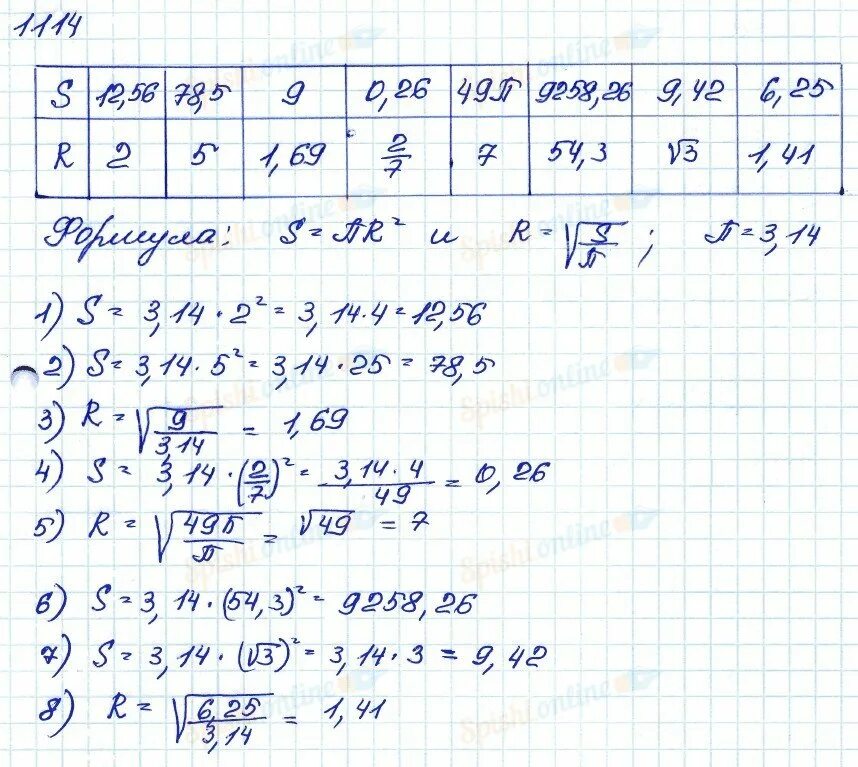 1114
S 12,56 78,5 9 0,26 49П 9258,26 9,42 6,25
R 2 5 1,69 2/7 7 54,3 √3 1,41
Формула: S = ПR² и R = √(S/П) ; П = 3,14
1) S = 3,14 · 2² = 3,14 · 4 = 12,56
2) S = 3,14 · 5² = 3,14 · 25 = 78,5
3) R = √(9/3,14) = 1,69
4) S = 3,14 · (2/7)² = 3,14 · 4/49 = 0,26
5) R = √(49П/П) = √49 = 7
6) S = 3,14 · (54,3)² = 9258,26
7) S = 3,14 · (√3)² = 3,14 · 3 = 9,42
8) R = √(6,25/3,14) = 1,41
Spishi.online